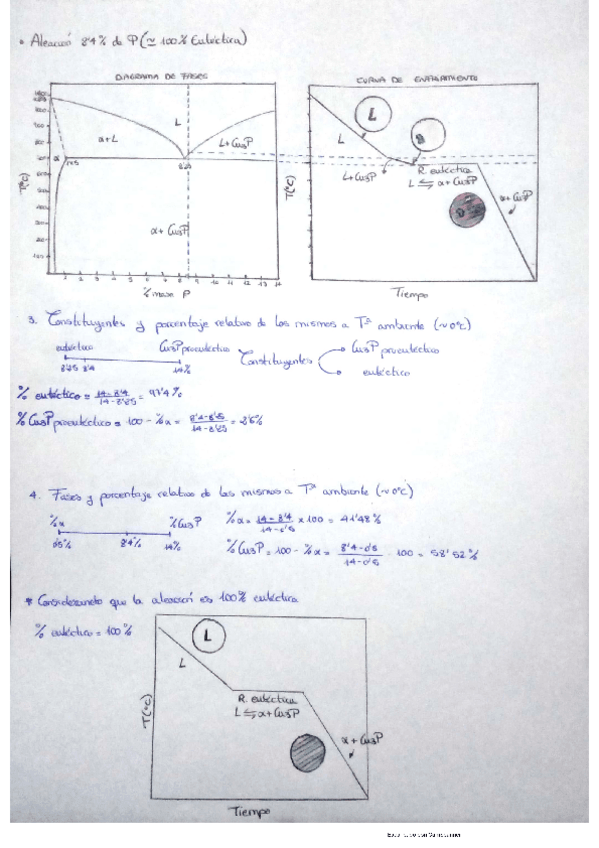 • Aleació 8'4% de P (≃ 100% Eutéctica)
DIAGRAMA DE FASES
CURVA DE ENFRIAMIENTO
L
α+L
L+Cu3P
α
α+Cu3P
T(ºC)
1 2 3 4 5 6 7 8 9 10 11 12 13 14
% masa P
L
L
L+Cu3P
R. eutéctica
L ⇆ α+Cu3P
α+Cu3P
T(ºC)
Tiempo
3. Constituyentes y porcentaje relativo de los mismos a Tª ambiente (~0ºC)
eutéctico Cu3P proeutéctico
8'25 8'4 14%
Constituyentes
Cu3P proeutéctico
eutéctico
% eutéctico = 14-8'4 / 14-8'25 = 97'4%
% Cu3P proeutéctico = 100 - %α = 8'4-8'25 / 14-8'25 = 2'6%
4. Fases y porcentaje relativo de los mismos a Tª ambiente (~0ºC)
%α %Cu3P
0'5% 8'4% 14%
%α = 14-8'4 / 14-0'5 x 100 = 41'48%
%Cu3P = 100 - %α = 8'4-0'5 / 14-0'5 · 100 = 58'52%
* Considerando que la aleación es 100% eutéctica
% eutéctico = 100%
L
L
R. eutéctica
L ⇆ α+Cu3P
α+Cu3P
T(ºC)
Tiempo